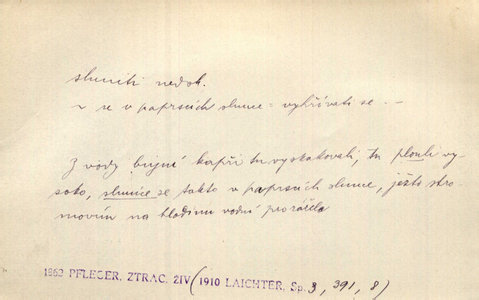 sluniti nedok.
~ se v paprscích slunce = vyhřívati se. –
Z vody bujné kapři tu vyskakovali, tu plouli vy-
soko, sluníce se takto v paprscích slunce, ježto stro-
movím na hladinu vodní prorážela
1863 PFLEGER, ZTRAC. 2IV (1910 LAICHTER, Sp. 3, 391, 8)